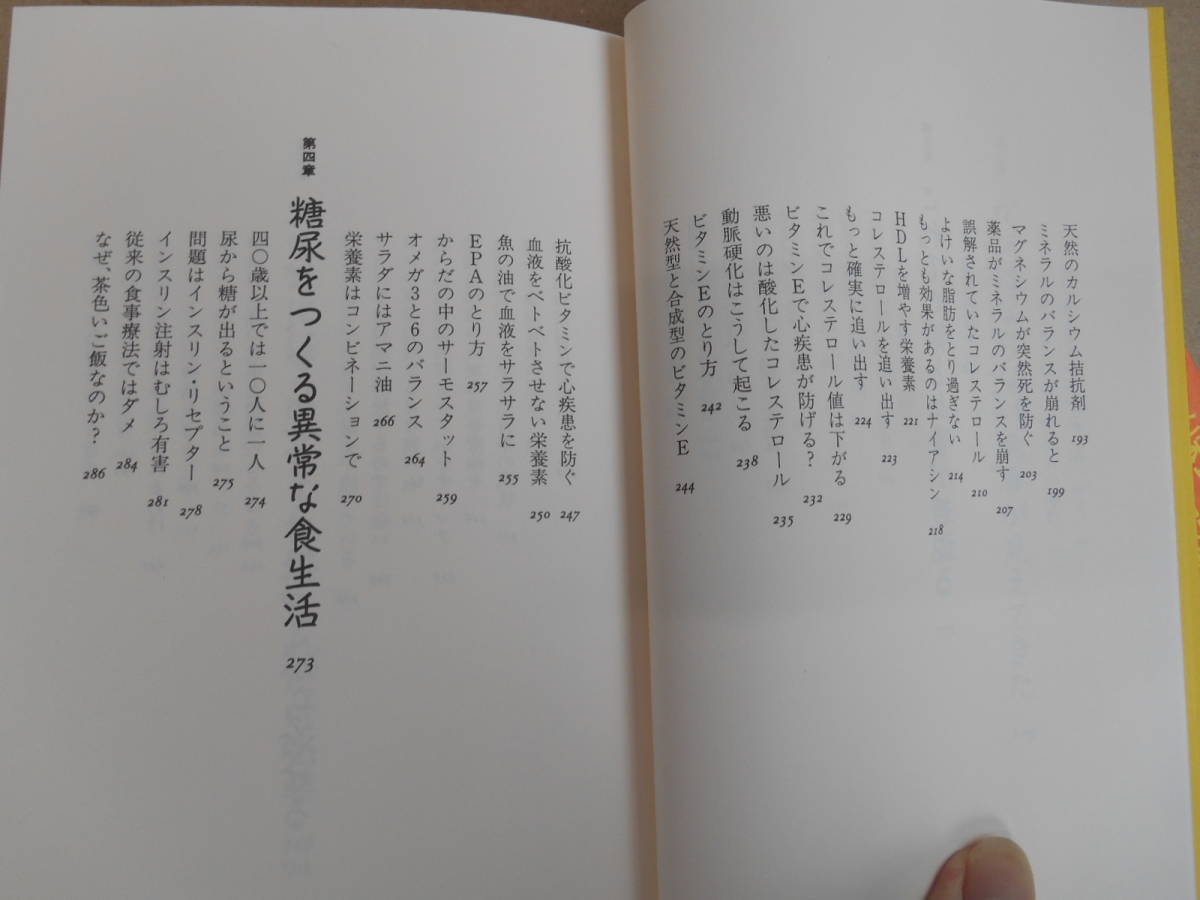 天然のカルシウム拮抗剤 193
ミネラルのバランスが崩れると 199
マグネシウムが突然死を防ぐ 203
薬品がミネラルのバランスを崩す 207
誤解されていたコレステロール 210
よけいな脂肪をとり過ぎない 214
もっとも効果があるのはナイアシン 218
HDLを増やす栄養素 221
コレステロールを追い出す 223
もっと確実に追い出す 224
これでコレステロール値は下がる 229
ビタミンEで心疾患が防げる? 232
悪いのは酸化したコレステロール 235
動脈硬化はこうして起こる 238
ビタミンEのとり方 242
天然型と合成型のビタミンE 244
抗酸化ビタミンで心疾患を防ぐ 247
血液をベトベトさせない栄養素 250
魚の油で血液をサラサラに 255
EPAのとり方 257
からだの中のサーモスタット 259
オメガ3と6のバランス 264
サラダにはアマニ油 266
栄養素はコンビネーションで 270
第四章 糖尿をつくる異常な食生活 273
四〇歳以上では一〇人に一人 274
尿から糖が出るということ 275
問題はインスリン・リセプター 278
インスリン注射はむしろ有害 281
従来の食事療法ではダメ 284
なぜ、茶色いご飯なのか? 286